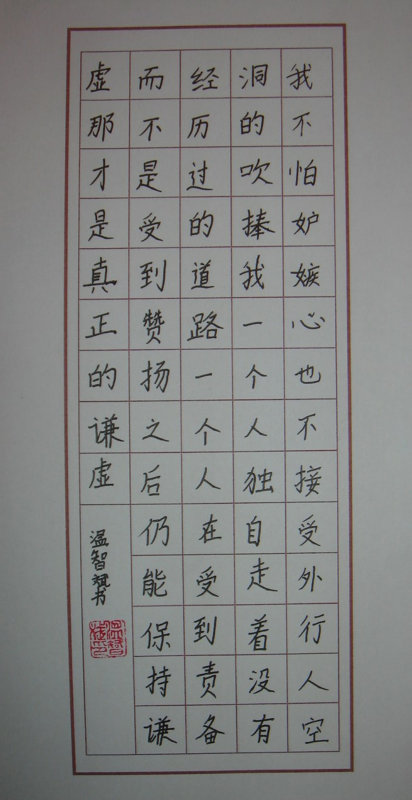 我不怕妒嫉心也不接受外行人空
洞的吹捧我一个人独自走着没有
经历过的道路一个人在受到责备
而不是受到赞扬之后仍能保持谦
虚那才是真正的谦虚
温智斌书